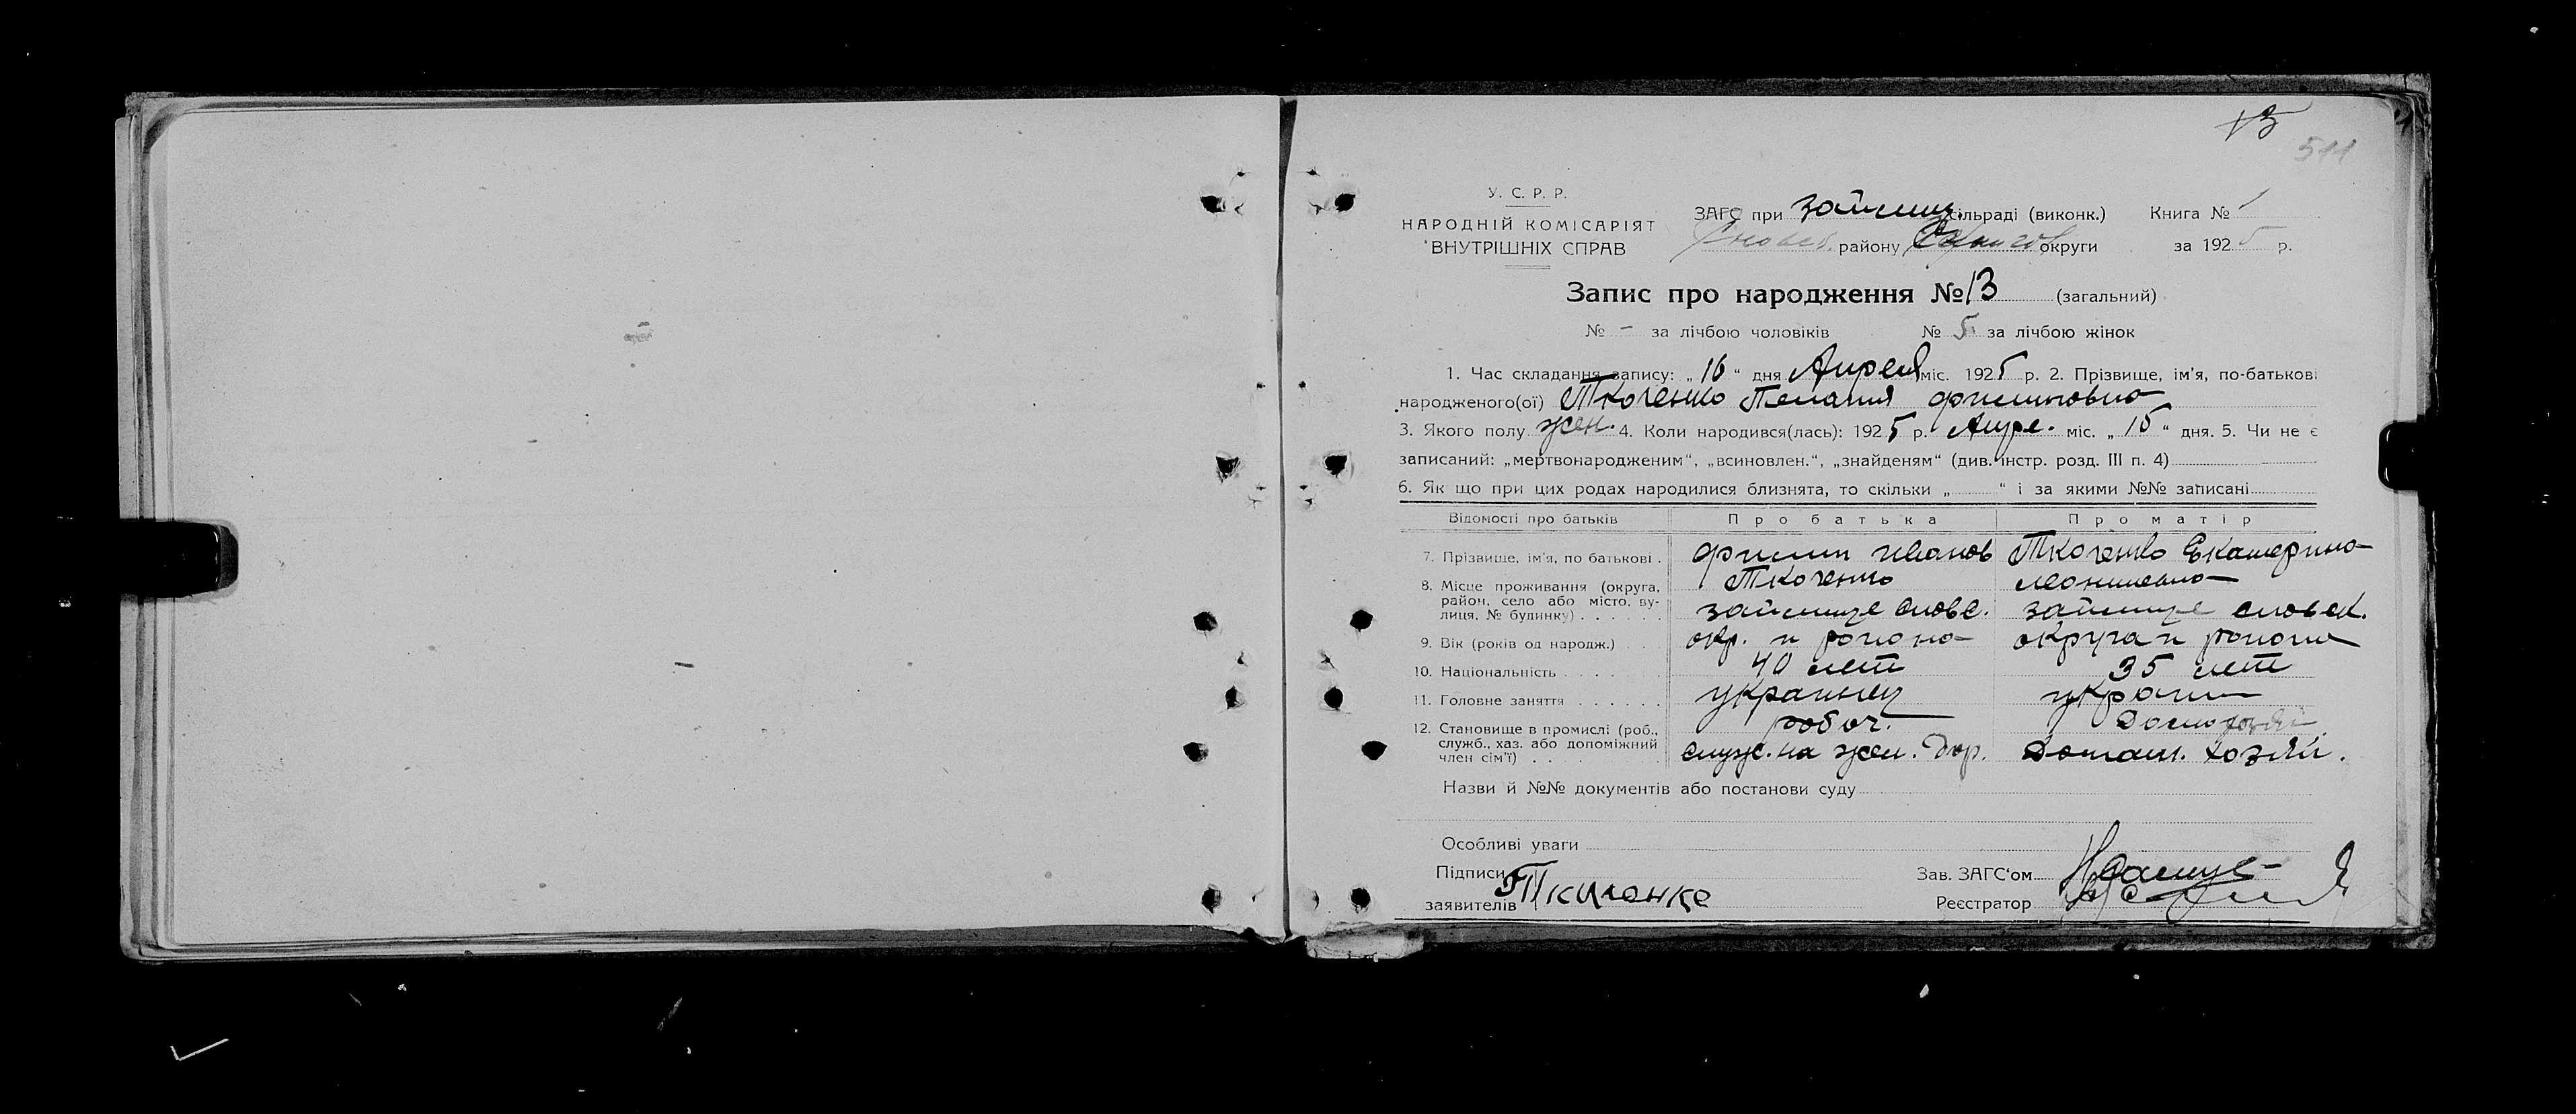 13
511
У. С. Р. Р.
НАРОДНІЙ КОМІСАРІЯТ
ВНУТРІШНІХ СПРАВ
ЗАГС при Займищ. сільраді (виконк.) Книга № 1
Сновск. району округи за 1925 р.
Запис про народження № 13 (загальний)
№ - за лічбою чоловіків № 5 за лічбою жінок
1. Час складання запису: „16“ дня Апреля міс. 1925 р. 2. Прізвище, ім'я, по-батькові
народженого(ої) Ткаченко Пелагия Филиповна
3. Якого полу жен. 4. Коли народився(лась): 1925 р. Апре. міс. „15“ дня. 5. Чи не є
записаний: „мертвонародженим“, „всиновлен.“, „знайденям“ (див. інстр. розд. III п. 4)
6. Як що при цих родах народилися близнята, то скільки „ “ і за якими №№ записані
Відомості про батьків Про батька Про матір
7. Прізвище, ім'я, по батькові . Филип Иванов Ткаченко Екатерина
8. Місце проживання (округа, Ткаченко
район, село або місто, ву-
лиця, № будинку) . . . . . . Займище Сновс. Займище Сновск.
9. Вік (років од народж.) . . . окр. и района округа и района
10. Національність . . . . . . 40 лет 35 лет
11. Головне заняття . . . . . . украинец украин
12. Становище в промислі (роб., рабоч.
служб., хаз. або допоміжний служ. на жел. дор. Домаш. хозяй.
член сім'ї) . . .
Назви й №№ документів або постанови суду
Особливі уваги
Підписи
заявителів Ткаченко
Зав. ЗАГС'ом
Реєстратор